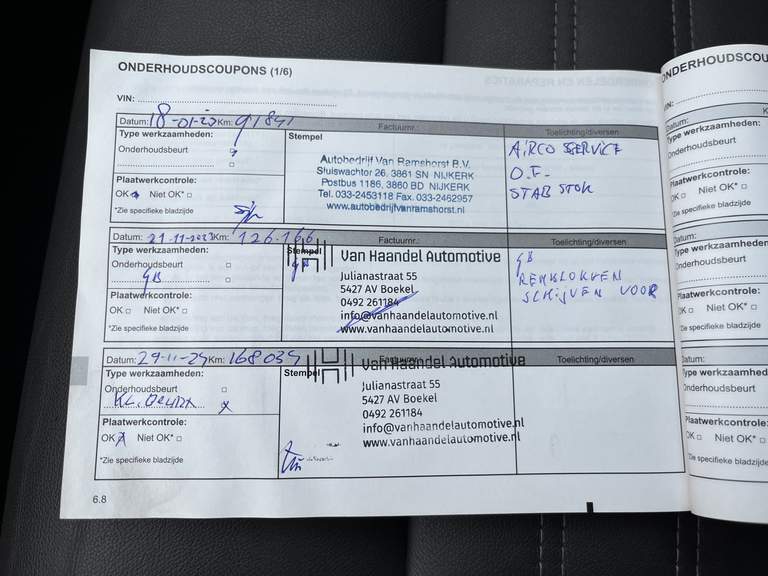 ONDERHOUDSCOUPONS (1/6)
VIN:
Datum: 18-01-23 Km: 91841 Factuurnr. Toelichting/diversen
Type werkzaamheden:
Onderhoudsbeurt
Plaatwerkcontrole:
OK Niet OK*
*Zie specifieke bladzijde
Stempel
Autobedrijf Van Ramshorst B.V.
Sluiswachter 26, 3861 SN NIJKERK
Postbus 1186, 3860 BD NIJKERK
Tel. 033-2453118 Fax. 033-2462957
www.autobedrijfvanramshorst.nl
AIRCO SERVICE
O.F.
STAB STOK
Datum: 21-11-2023 Km: 126.166 Factuurnr. Toelichting/diversen
Type werkzaamheden:
Onderhoudsbeurt
GB
Plaatwerkcontrole:
OK Niet OK*
*Zie specifieke bladzijde
Stempel
Van Haandel Automotive
Julianastraat 55
5427 AV Boekel
0492 261184
info@vanhaandelautomotive.nl
www.vanhaandelautomotive.nl
GB
REMBLOKKEN
SCHIJVEN VOOR
Datum: 29-11-24 Km: 168034 Factuurnr. Toelichting/diversen
Type werkzaamheden:
Onderhoudsbeurt
KL. Beurt
Plaatwerkcontrole:
OK Niet OK*
*Zie specifieke bladzijde
Stempel
Van Haandel Automotive
Julianastraat 55
5427 AV Boekel
0492 261184
info@vanhaandelautomotive.nl
www.vanhaandelautomotive.nl
6.8
ONDERHOUDSCOU
VIN:
Datum:
Type werkzaamheden:
Onderhoudsbeurt
Plaatwerkcontrole:
OK Niet OK*
*Zie specifieke bladzijde
Datum:
Type werkzaamheden:
Onderhoudsbeurt
Plaatwerkcontrole:
OK Niet OK*
*Zie specifieke bladzijde
Datum:
Type werkzaamheden:
Onderhoudsbeurt
Plaatwerkcontrole:
OK Niet OK*
*Zie specifieke bladzijde